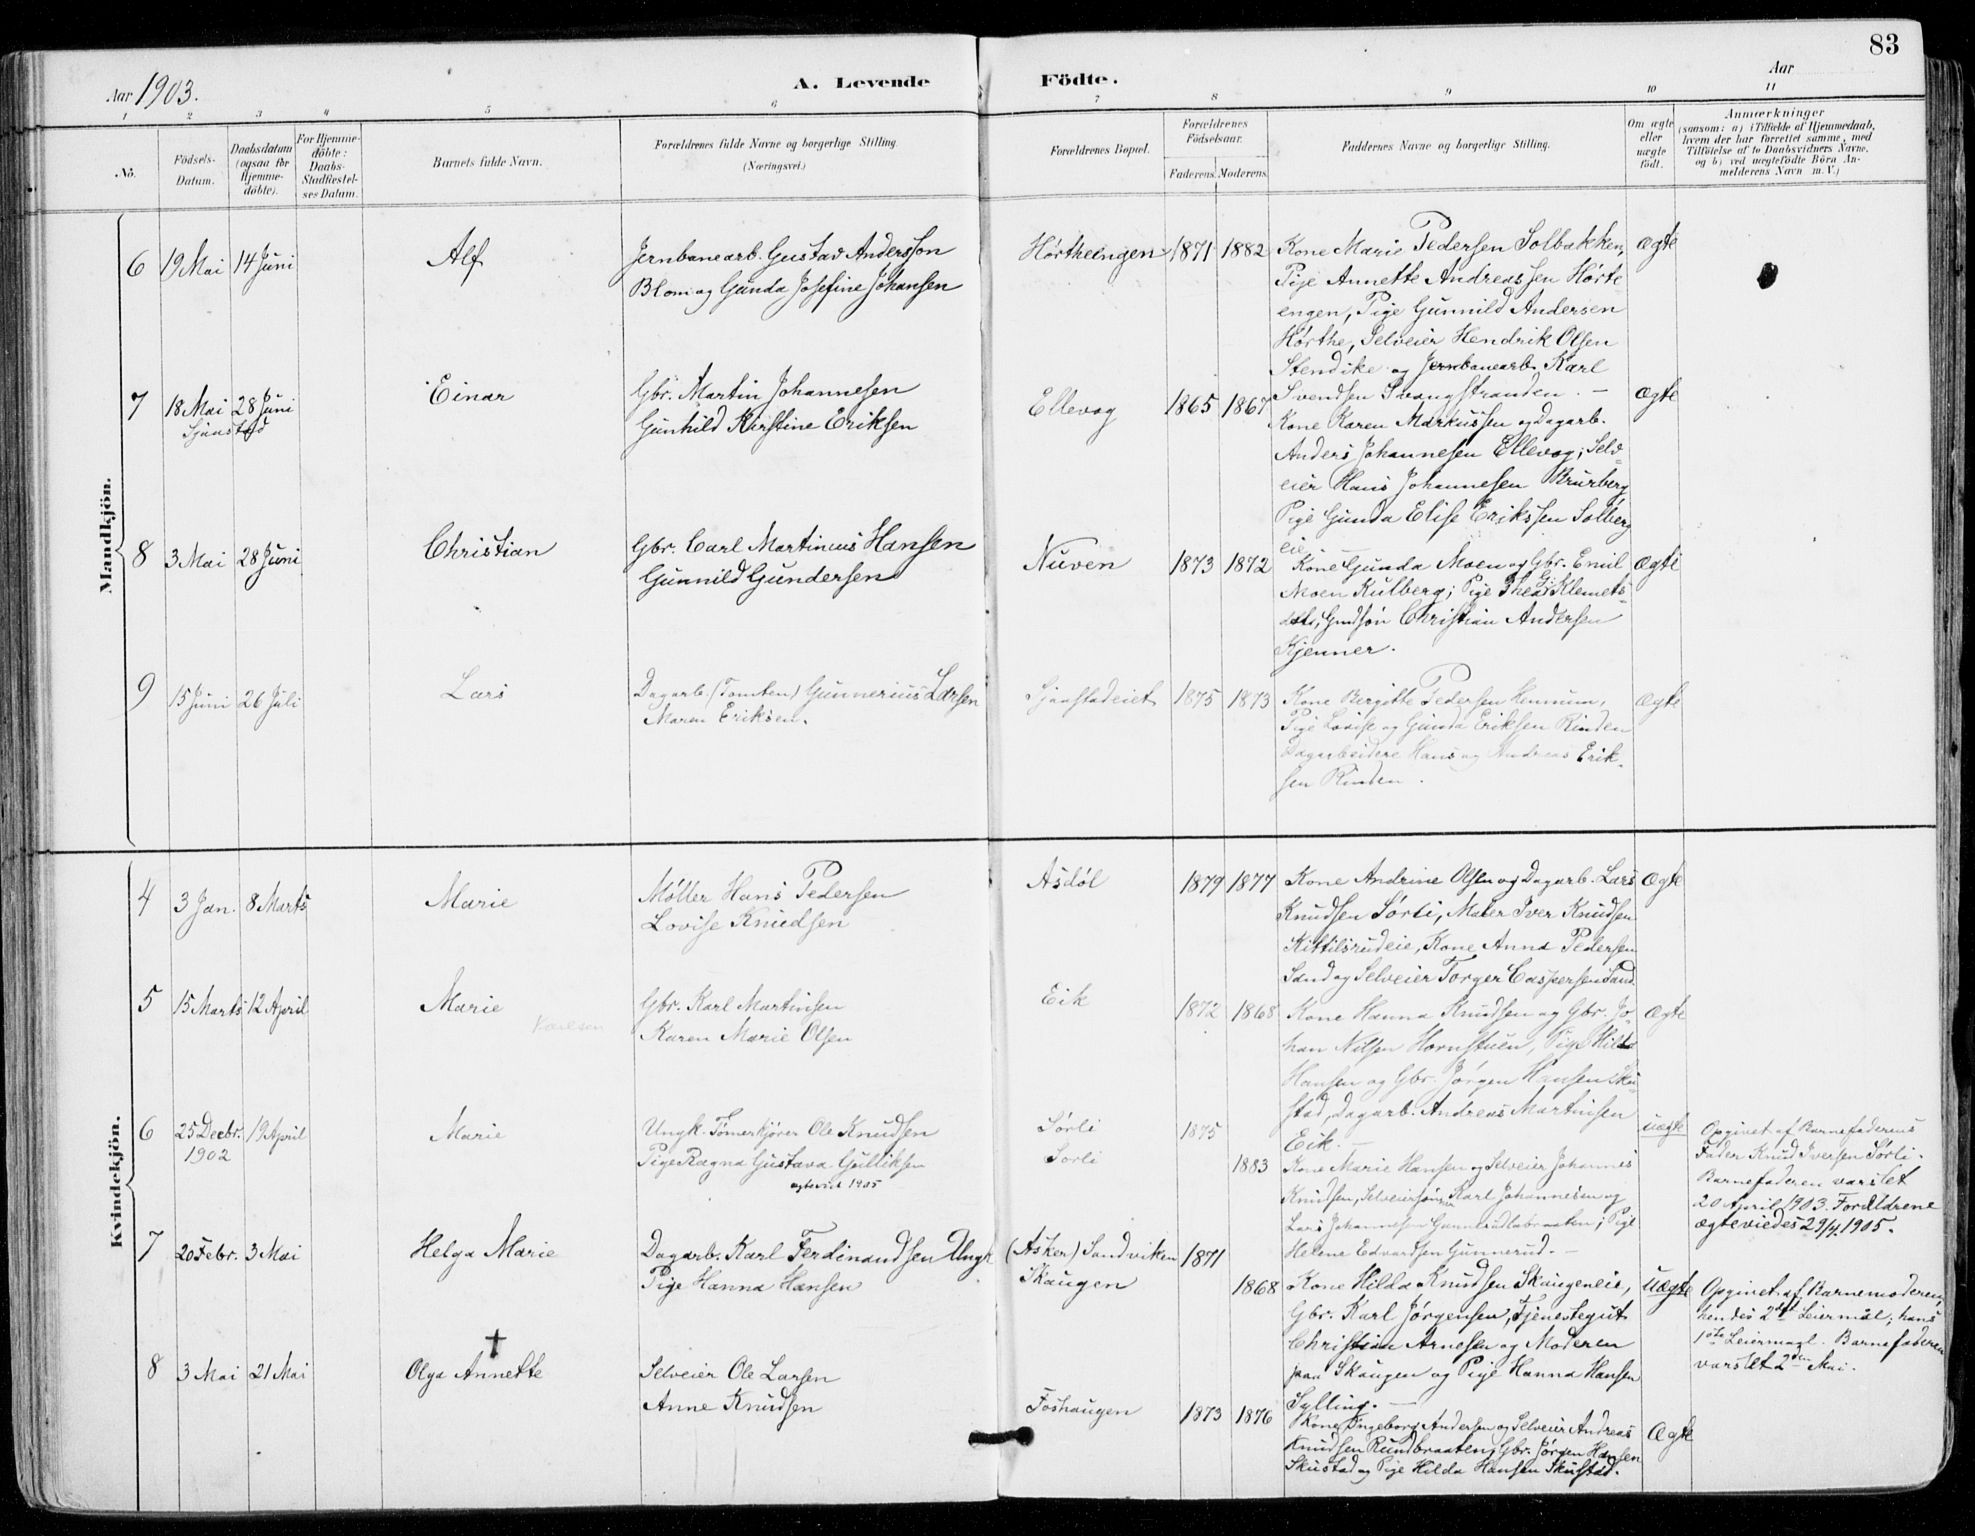 83
Aar 1903.
A. Levende Födte.
Aar
1 2 3 4 5 6 7 8 9 10 11
No.
Födsels-Datum.
Daabsdatum (ogsaa for Hjemme-döbte).
For Hjemme-döbte: Daabs-Stadfæstel-ses Datum.
Barnets fulde Navn.
Forældrenes fulde Navne og borgerlige Stilling.
(Næringsvei.)
Forældrenes Bopæl.
Forældrenes Födselsaar.
Faderens. Moderens.
Faddernes Navne og borgerlige Stilling.
Om ægte eller uægte födt.
Anmærkninger
(saasom: a) i Tilfælde af Hjemmedaab,
hvem der har forrettet samme, med
Tilföielse af to Daabsvidners Navne,
og b) ved uægtefödte Börn An-
melderens Navn m. V.)
Mandkjön.
6 19 Mai 14 Juni Alf
Jernbanearb. Gustav Andersson
Blom og Gunda Josefine Johansen
Hørtheengen 1871 1882
Kone Marie Pedersen Solbakken,
Pige Annette Andreassen Hørte-
engen, Pige Gunnild Andersen
Hørthe, Selveier Hendrik Olsen
Stendike og Jernbanearb. Karl
Svendsen Svangstranden. –
Ægte
7 18 Mai 28 Juni
Sjaastad
Einar
Gbr. Martin Johannesen
Gunhild Kirstine Eriksen
Ellevog 1865 1867
Kone Karen Markussen og Dagarb.
Anders Johannesen Ellevog; Selv-
eier Hans Johannesen Brurberg
Pige Gunda Elise Erikssen Solberg
eie
Ægte
8 3 Mai 28 Juni Christian
Gbr. Carl Martinius Hansen
Gunnild Gundersen
Nuven 1873 1872
Kone Gunda Moen og Gbr. Emil
Moen Kulberg; Pige Thea G. Klemets-
, Gmdsøn Christian Andersen
Kjenner.
Ægte
9 15 Juni 26 Juli Lars
Dagarb. (Tomten) Gunnerius Larsen
Maren Eriksen.
Sjaastadeiet 1875 1873
Kone Bergitte Pedersen
Pige Lovise og Gunda Eriksen Rinden
Dagarbeidere Hans og Andreas Erik-
sen Rinden.
Ægte
Kvindekjön.
4 3 Jan. 8 Marts Marie
Møller Hans Pedersen
Lovise Knudsen
Asdøl 1879 1877
Kone Andrine Olsen og Dagarb. Lars
Knudsen Sørli, Maler Iver Knudsen
Kittilsrudeie, Kone Anna Pedersen
Sand og Selveier Torger Caspersen Sand
Ægte
5 15 Marts 12 April Marie
Karlsen
Gbr. Karl Martinsen
Karen Marie Olsen
Eik 1872 1868
Kone Hanna Knudsen og Gbr. Jo-
han Nilsen Hornstuen, Pige Hilda
Hansen og Gbr. Jørgen Hansen Sku-
stad, Dagarb. Andreas Martinsen
Eik. –
Ægte
6 25 Decbr. 19 April
1902
Marie
Ungk. Tømerkjører Ole Knudsen
Pige Ragna Gustava Gulliksen
ægteviet 1905
Sørli 1875
Sørli 1883
Kone Marie Hansen og Selveier Johannes
Knudsen, Selveiersønner Karl Johannesen og
Lars Johannesen Gunnerudlabraaten; Pige
Helene Edvardsen Gunnerud. –
uægte
Opgivet af Barnefaderens
Fader Knud Iversen Sørli.
Barnefaderen varslet
20 April 1903. Forældrene
ægteviedes 29/4 1905.
7 20 Febr. 3 Mai Helga Marie
Dagarb. Karl Ferdinandsen Ungk
Pige Hanna Hansen
(Asker) Sandviken 1871
Skaugen 1868
Kone Hilda Knudsen Skaugeneie,
Gbr. Karl Jørgensen, Tjenestegut
Christian Arnesen og Moderen
paa Skaugen og Pige Hanna Hansen
Sylling. –
uægte
Opgivet af Barnemoderen,
hendes 2det Leiermål; hans
1ste Leiermaal. Barnefaderen
varslet 2den Mai.
8 3 Mai 21 Mai Olga Annette
Selveier Ole Larsen
Anne Knudsen
Foshaugen 1873 1876
Kone Ingeborg Andersen og Selveier Andreas
Knudsen Rundbraaten; Gbr. Jørgen Hansen
Skustad og Pige Hilda Hansen Skustad.
Ægte